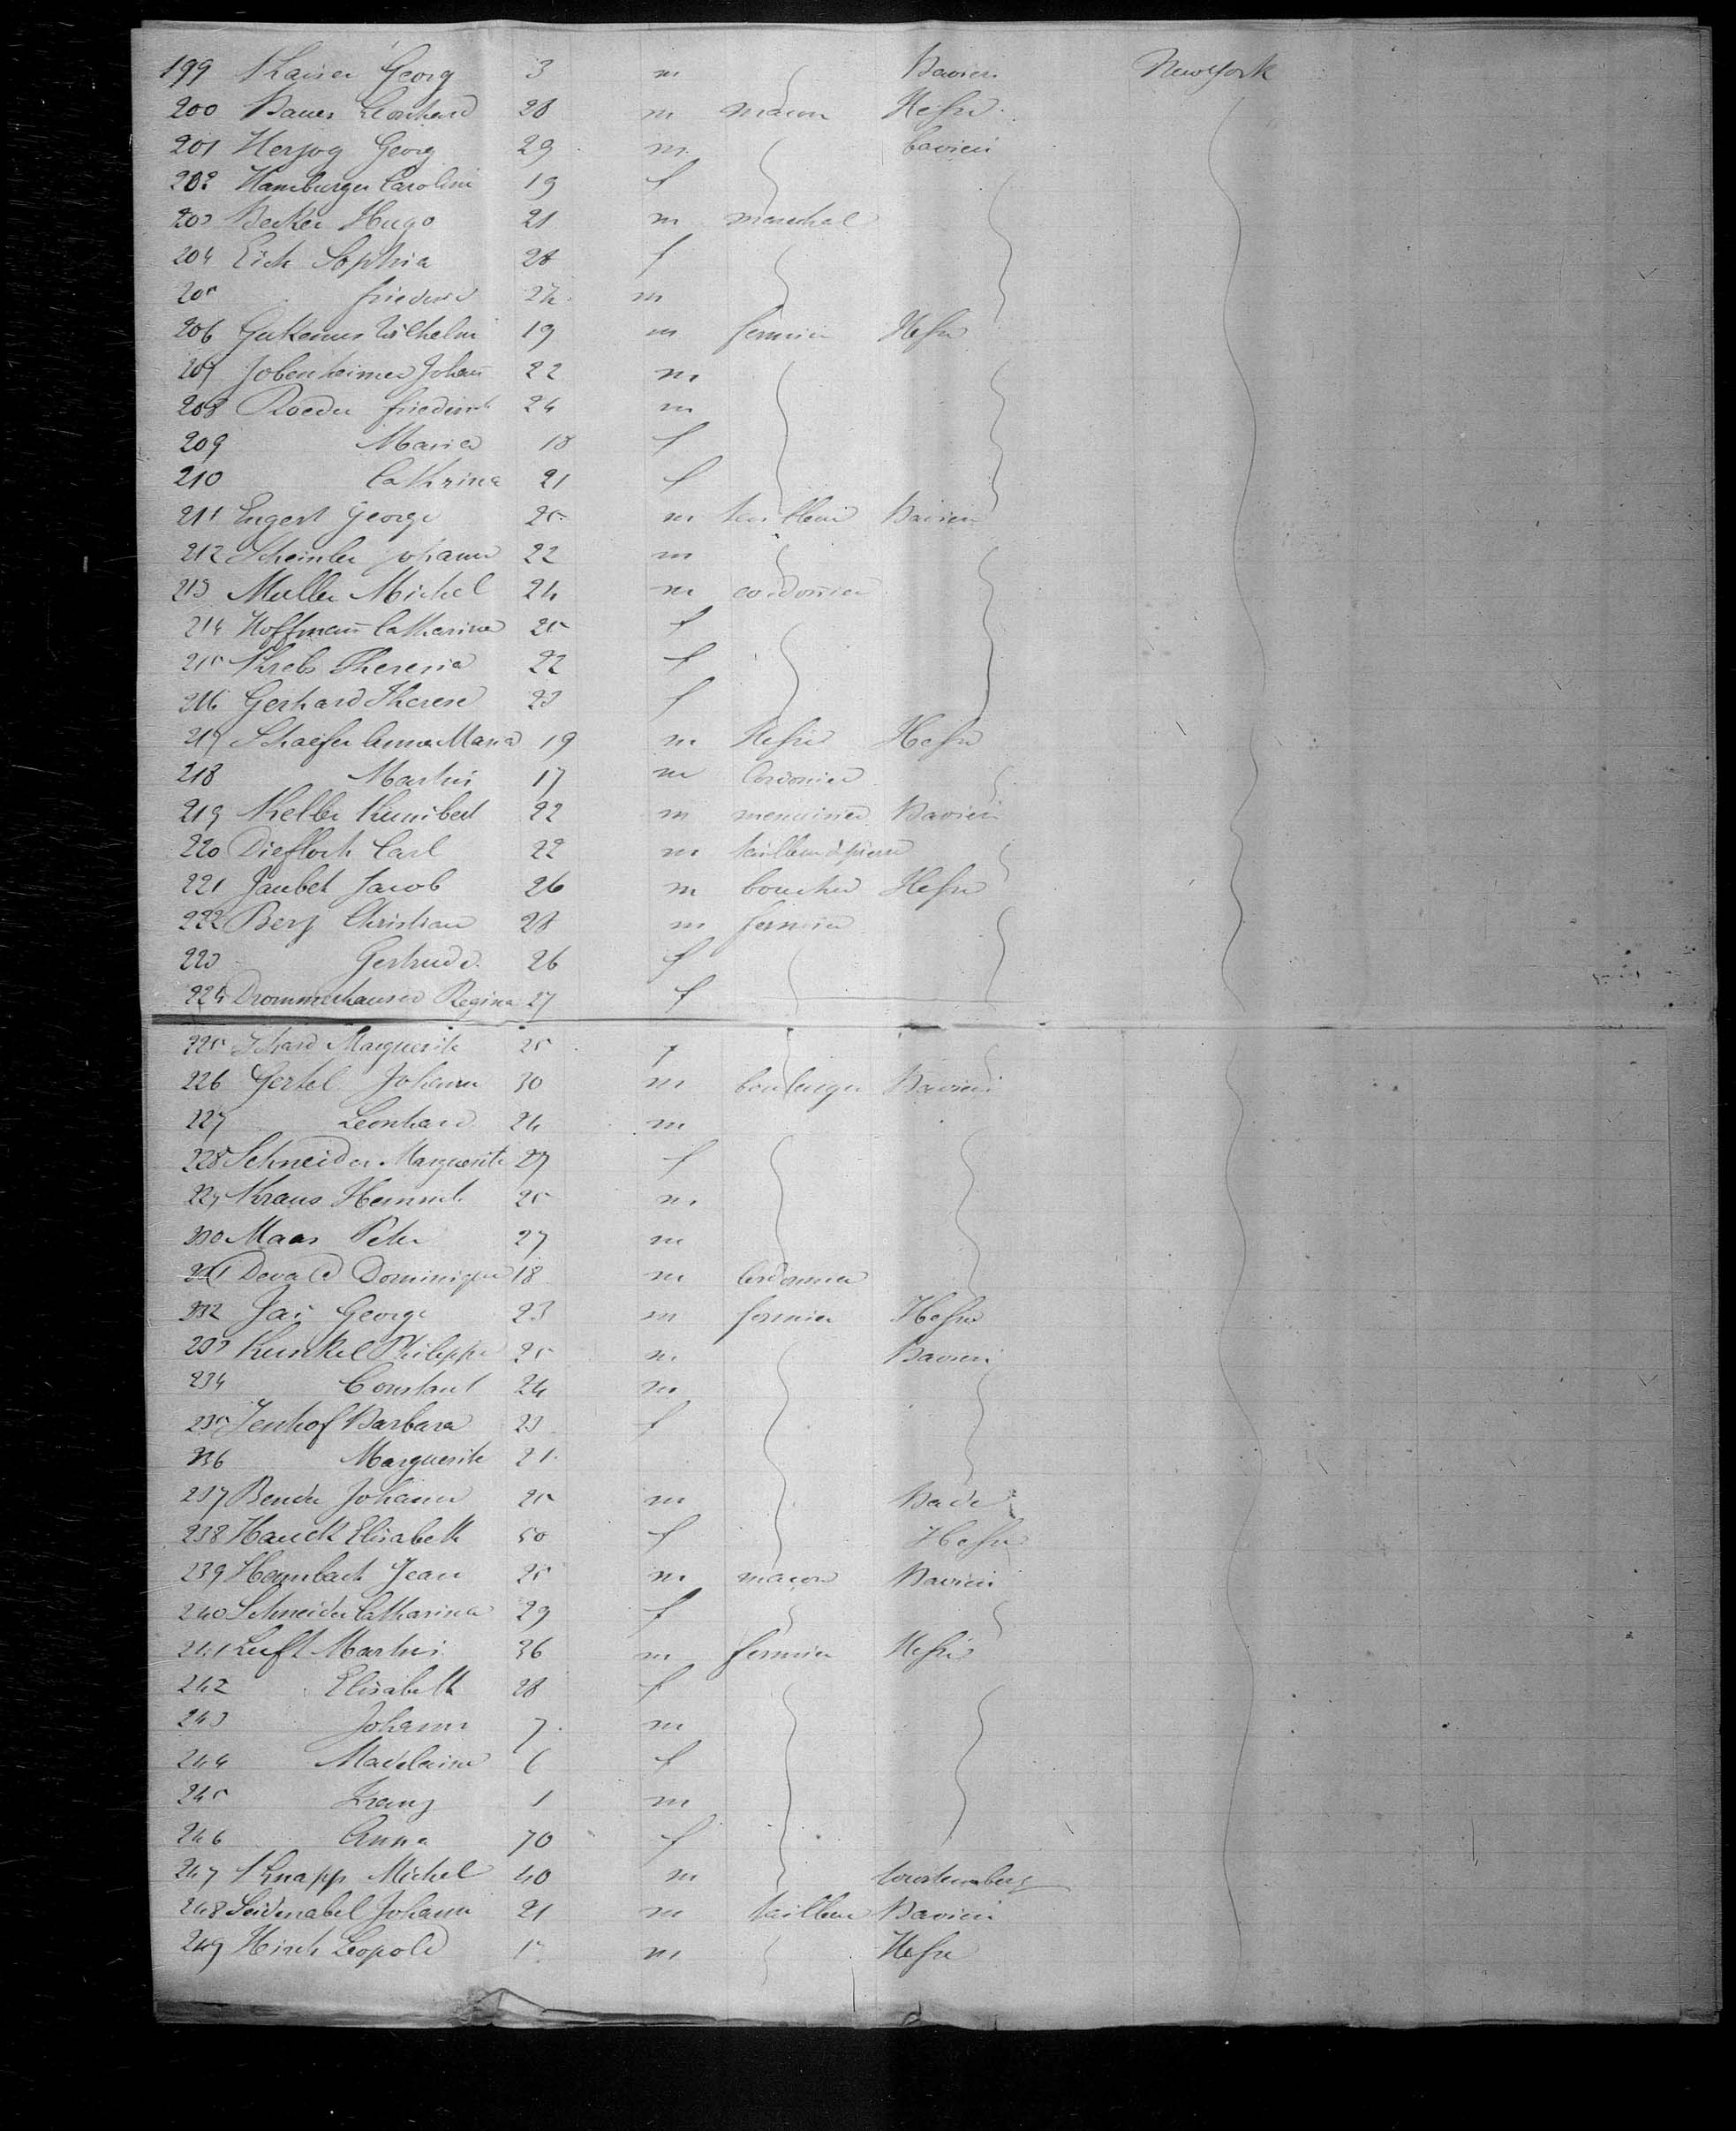 199 Kaiser Georg 3 m Baviere New York
200 Bauer Leonhard 28 m macon Hesse
201 Herzog Georg 29 m baviere
202 Hamburger Caroline 19 f
203 Becker Hugo 21 m marechal
204 Eich Sophia 28 f
205 friedrich 24 m
206 Wilhelm 19 m fermier Hesse
207 Jobenheimer Johañ 22 m
208 Roeder friedrich 24 m
209 Maria 18 f
210 Cathrina 21 f
211 Engert George 25 m tailleur Baviere
212 Johann 22 m
213 Muller Michel 24 m cordoñier
214 Hoffmañ Catharina 25 f
215 Krebs Theresia 22 f
216 Gerhard Therese 23 f
217 Schaefer Anna Maria 19 m Hesse
218 Martin 17 m Cordonier
219 Keller Kunibert 22 m menuisier Baviere
220 Diefloch Carl 22 m tailleur d pierre
221 Jaubet Jacob 26 m boucher Hesse
222 Berz Christian 28 m fermier
223 Gertrude 26 f
224 Drommerhauser Regina 27 f
225 Marguerite 25 f
226 Gertel Johann 30 m boulanger Baviere
227 Leonhard 24 m
228 Schneider Marguerite 27 f
229 Kraus Heinrich 25 m
230 Maas Peter 27 m
231 Devald Dominique 18 m Cordonnier
232 George 23 m fermier Hesse
233 Kunkel Philippe 25 m Baviere
234 Constant 24 m
235 Jenhof Barbara 23 f
236 Marguerite 21
237 Bender Johann 25 m Bade
238 Hauck Elisabeth 50 f Hesse
239 Hambach Jean 25 m macon Baviere
240 Schneider Catharina 29 f
241 Luft Martin 36 m fermier Hesse
242 Elisabeth 28 f
243 Johann 7 m
244 Madelaine 6 f
245 Franz 1 m
246 Anna 70 f
247 Knapp Michel 40 m Wurtemberg
248 Seidenabel Johann 21 m tailleur Baviere
249 Hirsch Leopold m Hesse